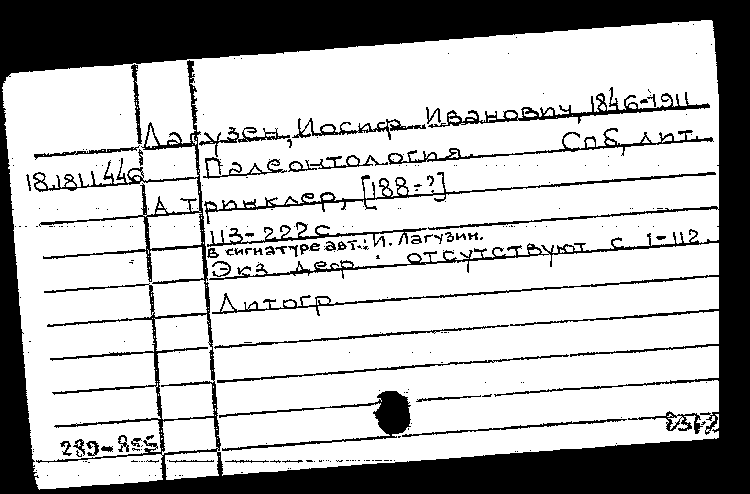 Лагузен, Иосиф Иванович, 1846-1911
18.1811.446 Палеонтология. Спб, лит.
А. Тринклер, [188-?]
113-222 с.
В сигнатуре авт.: И. Лагузин.
Экз. деф.: отсутствуют с. 1-112.
Литогр.
289-855